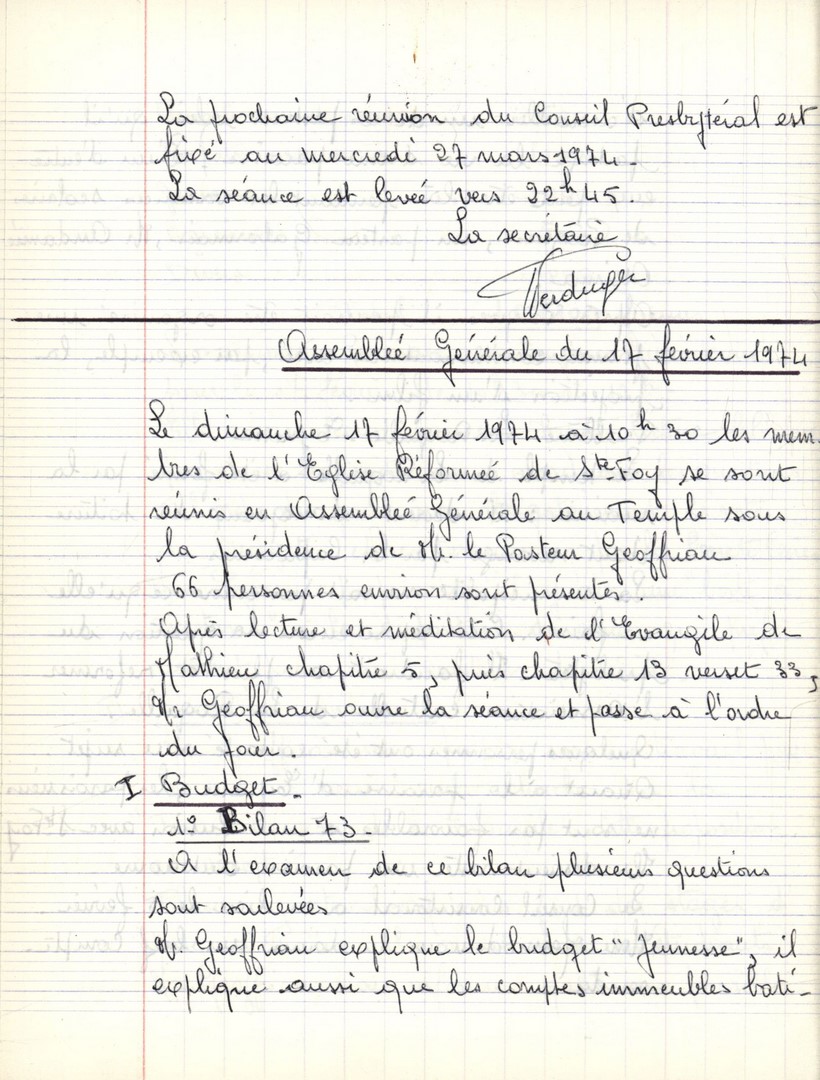 La prochaine réunion du Conseil Presbytéral est
fixé au mercredi 27 mars 1974.
La séance est levée vers 22h45.
La secrétaire
Assemblée Générale du 17 février 1974
Le dimanche 17 février 1974 à 10h30 les mem-
bres de l'Eglise Réformée de Ste-Foy se sont
réunis en Assemblée Générale au Temple sous
la présidence de M. le Pasteur Geoffriau
66 personnes environ sont présentes.
Après lecture et méditation de l'Evangile de
Mathieu chapitre 5, puis chapitre 13 verset 33,
Mr Geoffriau ouvre la séance et passe à l'ordre
du jour.
I Budget.
1° Bilan 73.
A l'examen de ce bilan plusieurs questions
sont soulevées
M. Geoffriau explique le budget "Jeunesse", il
explique aussi que les comptes immeubles bati-